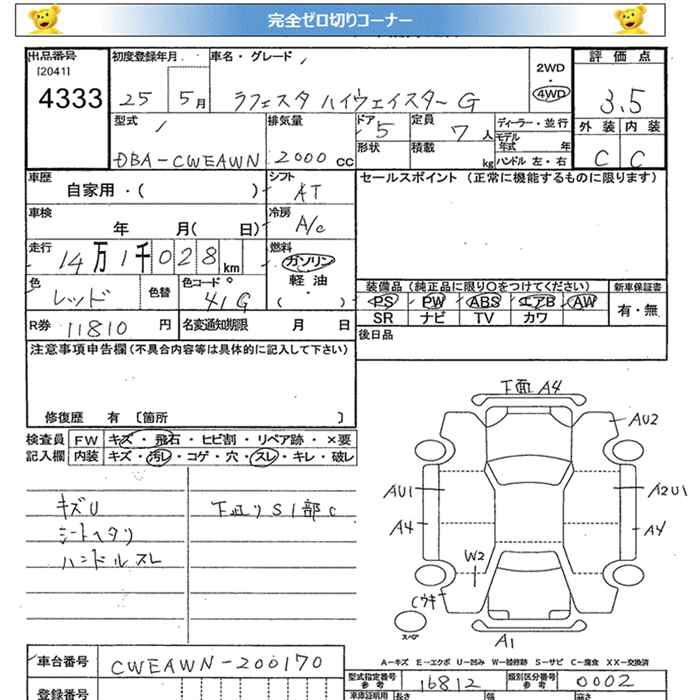 完全ゼロ切りコーナー
出品番号 初度登録年月 車名・グレード 評価点
[2041]
4333 25 5月 ラフェスタ ハイウェイスターG 2WD・4WD 3.5
型式 排気量 ドア 5 定員 7人 ディーラー・並行 外装 内装
DBA-CWEAWN 2000cc 形状 積載 kg モデル年式 年 ハンドル 左・右 C C
車歴 自家用・( ) シフト AT セールスポイント (正常に機能するものに限ります)
車検 年 月( 日) 冷房 A/C
走行 14万1千028km 燃料 ガソリン
軽油
( )
色 レッド 色替 色コード 41G 装備品 (純正品に限り○をつけてください) 新車保証書
PS PW ABS エアB AW 有・無
SR ナビ TV カワ
R券 11810円 名変通知期限 月 日 後日品
注意事項申告欄(不具合内容等は具体的に記入して下さい)
修復歴 有 〔箇所 〕
検査員 FW キズ・飛石・ヒビ割・リペア跡・×要
記入欄 内装 キズ・汚レ・コゲ・穴・スレ・キレ・破レ
キズU
シートヘタリ
ハンドルスレ
下廻りS1部C
下面 A4
AU2
AU1 A2U1
A4 A4
W2
Cウキ
スペア
A1
A―キズ E―エクボ U―凹み W―補修跡 S―サビ C―腐食 XX―交換済
車台番号 CWEAWN-200170
型式指定番号 参考 16812 類別区分番号 参考 0002
登録番号
車庫証明用 長さ 幅 高さ